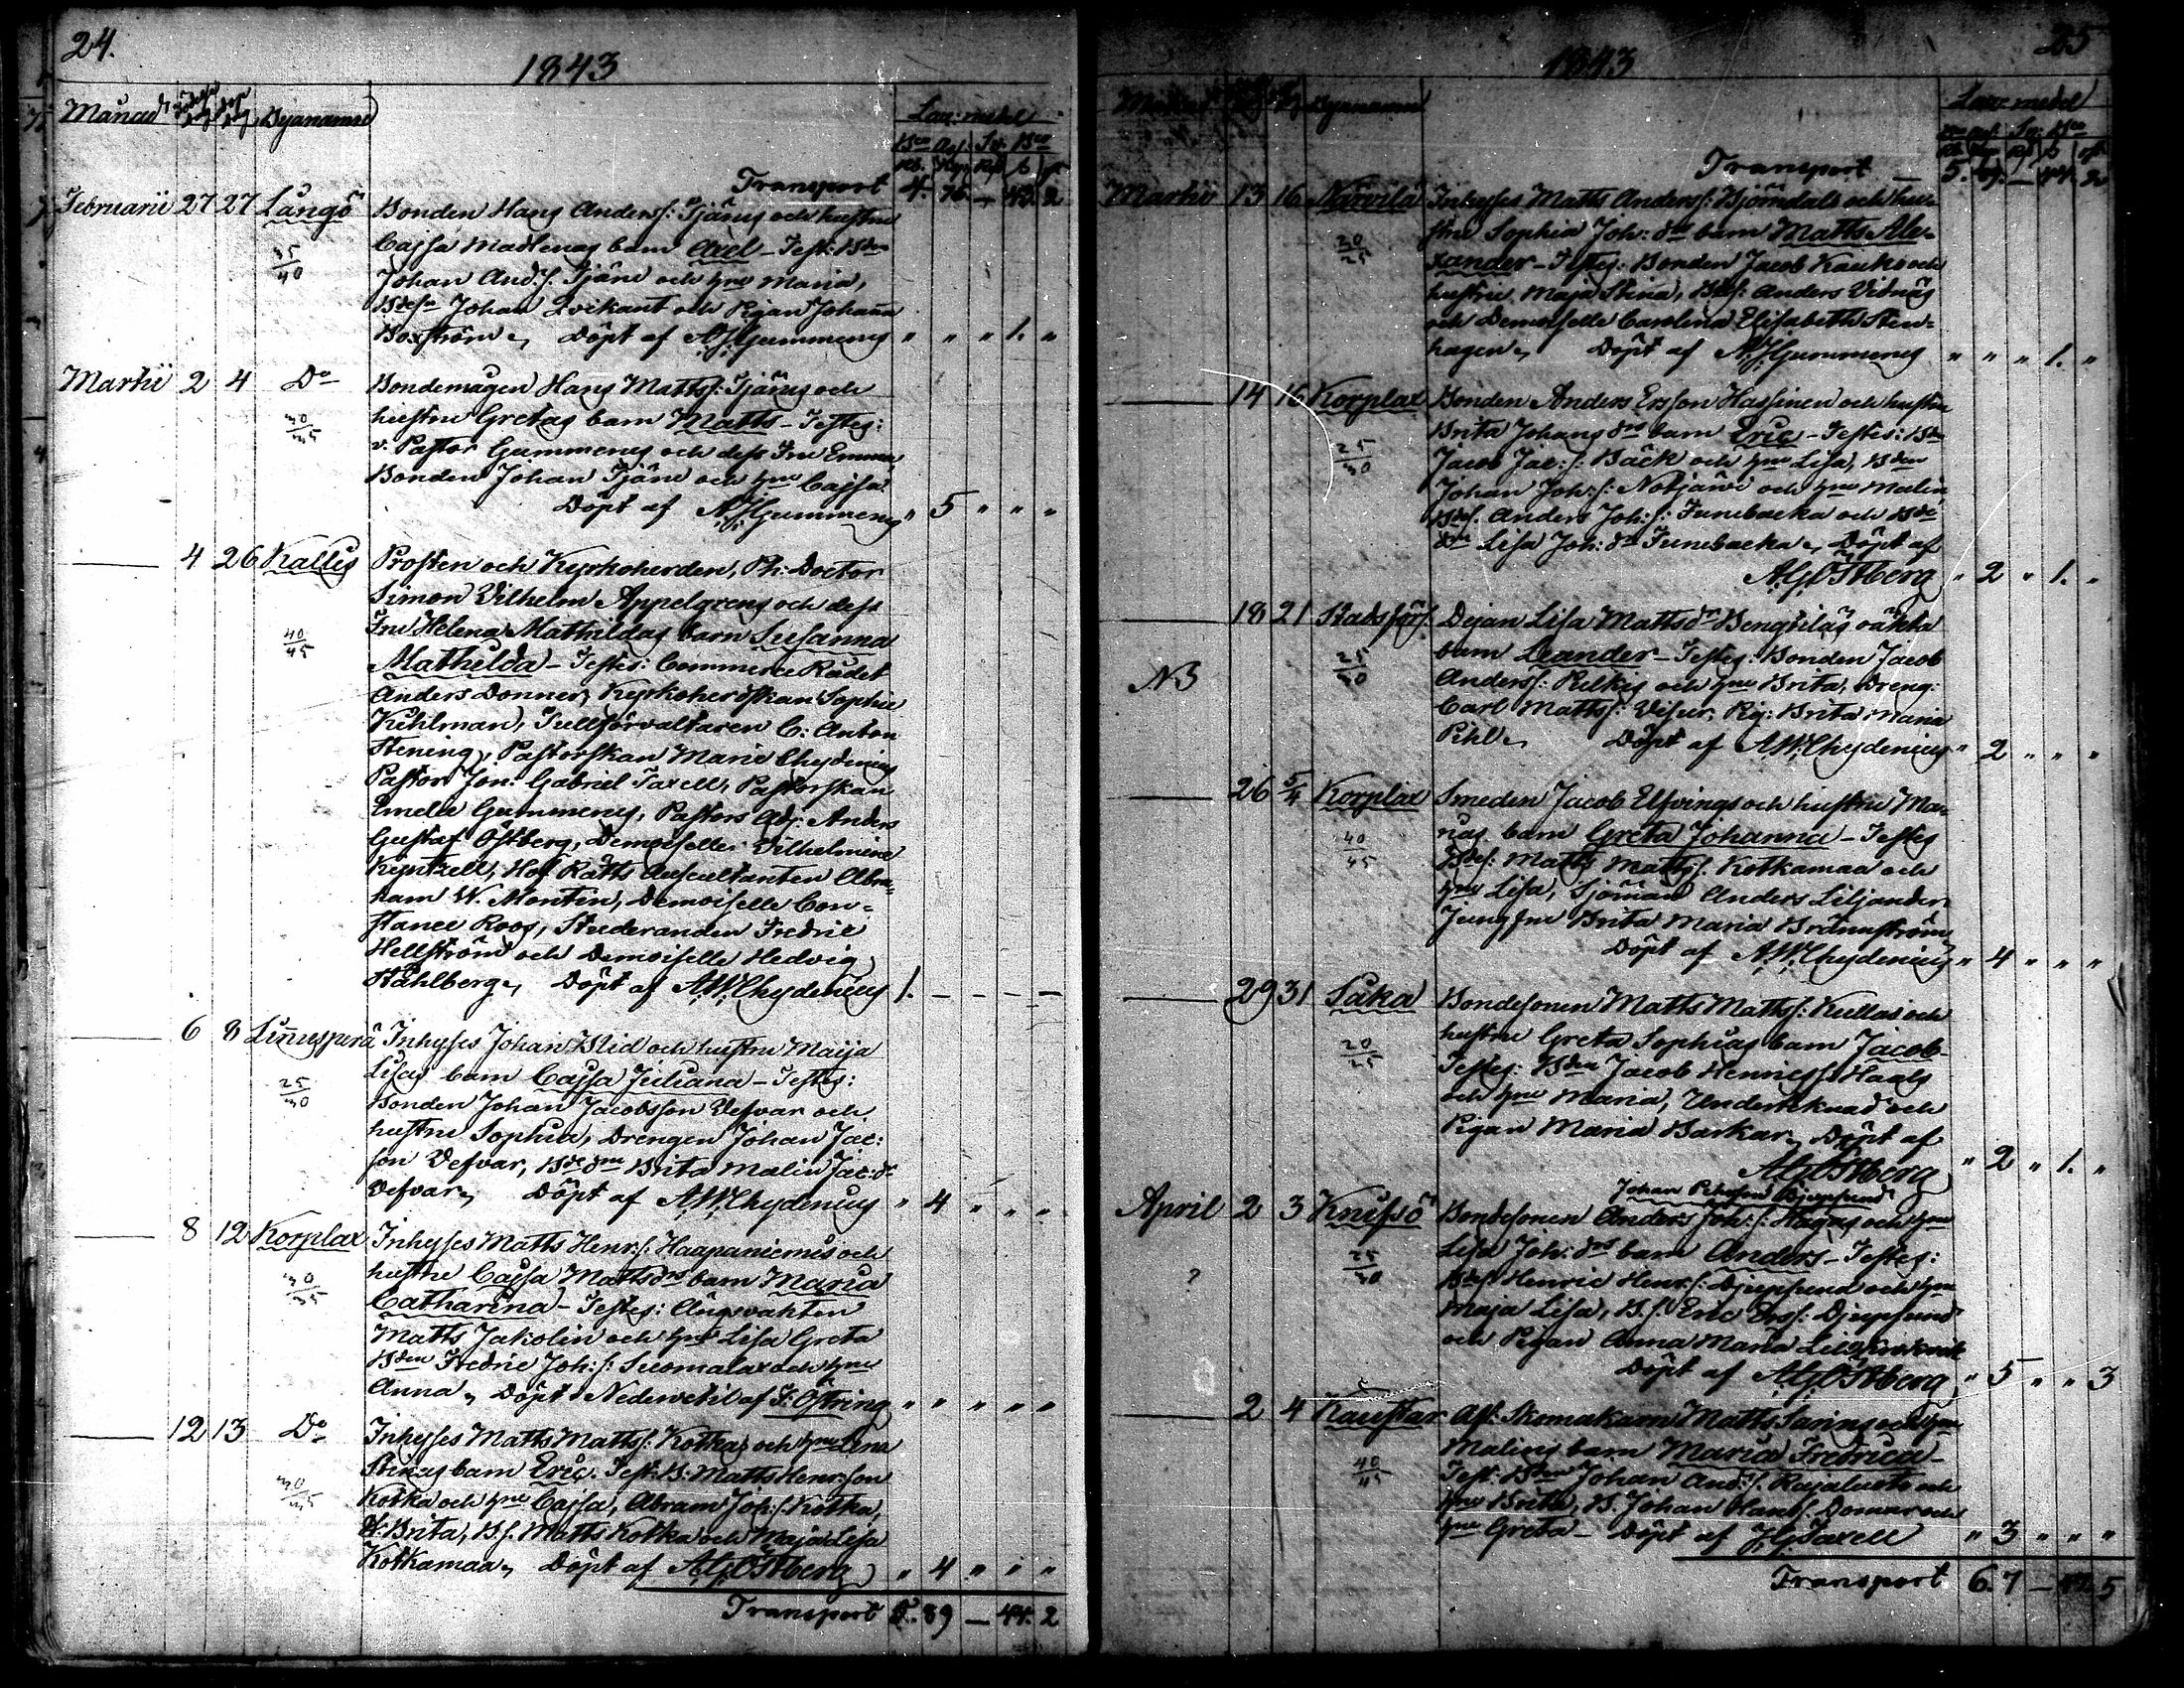 24.
1843
Månad Byanamn Laz: medel
Transport 4. 76. – 43. 2
Februarii 27 27 Långö Bonden Hans Anders: Tjärus och hustru
35/40 Cajsa Madlenas barn Axel – Test: Bden
Johan And:s. Tjäru och hru Maria,
Bdesn Johan Qvikant och Pigan Johanna
Boxström. Döpt af A. J. Gummerus " " " 1. "
Martii 2 4 Do Bondemågen Hans Matts: Tjärus och
30/35 hustru Gretas barn Matts – Testes:
v. Pastor Gummerus och dess Fru Emma,
Bonden Johan Tjäru och hru Cajsa.
Döpt af A. J. Gummerus " 5 " " "
4 26 Kallis Prosten och Kyrkoherden, Ph: Doctor
Simon Vilhelm Appelgrens och dess
40/45 Fru Helena Mathildas barn Susanna
Mathilda – Testes: Commerce Rådet
Anders Donner, Kyrkoherdskan Sophie
Kihlman, Tullförvaltaren C: Anton
Stening, Pastorskan Marie Chydenius
Pastor Jon: Gabriel Taxell, Pastorskan
Emelie Gummerus, Pastors Adj: Anders
Gustaf Östberg, Demoiselle Vilhelmina
Kyntzell, Hof Rätts Auscultanten Abra-
ham W. Montin, Demoiselle Con-
stance Roos, Studeranden Fredric
Hellström och Demoiselle Hedvig
Ståhlberg. Döpt af A. W. Chydenius 1. – – – –
6 8 Linnusperä Inhyses Johan Blid och hustru Maija
25/30 Lisas barn Cajsa Juliana – Testes:
Bonden Johan Jacobsson Vefvar och
hustru Sophia, Drengen Johan Jac:
son Vefvar, Bdedrn Brita Malin Jac:dr
Vefvar. Döpt af A. W. Chydenius " 4 " " "
8 12 Korplax Inhyses Matts Henr:s: Haapaniemis och
30/35 hustru Cajsa Mattsdrs barn Maria
Catharina – Testes:
Matts Jakolin och hru Lisa Greta
Bden Fredric Joh:s: Suomalax och hru
Anna. Döpt i Nedervetil af F: Östring " " " " "
12 13 Do Inhyses Matts Matts: Kotkas och hru Lena
30/35 Stinas barn Eric. Test: B: Matts Henr:son
Kotka och hru Cajsa, Abram Joh:s: Kotka,
H: Brita, B.s. Matts Kotka och Maja Lisa
Kotkamaa. Döpt af A. G. Östberg " 4 " " "
Transport 5. 89 – 44. 2
25
1843
Byanamn Laz: medel
Transport – 5. 89. – 44. 2
Martii 13 16 Närvilä Inhyses Matts Anders: Björndals och hu-
20/25 stru Sophia Joh: drs barn Matts Ale-
xander – Testes: Bonden Jacob Kauko och
hustru Maja Stina, Bdes: Anders Vidnäs
och Demoiselle Carolina Elisabeth Sten-
hagen. Döpt af A. J. Gummerus " " " 1. "
14 16 Korplax Bonden Anders Ersson Hassinen och hustru
25/30 Brita Johans drs barn Eric – Testes: Bden
Jacob Jac:s: Bäck och hru Lisa, Bden
Johan Joh:s: Notjärvi och hru Malin
Bdes. Anders Joh:s: Tunebacka och Bde
drn Lisa Joh: dr Tunebacka. Döpt af
A. G. Östberg " 2 " 1. "
18 21 Stadsförs. Pigan Lisa Mattsdr Bengtilas oäkta
N3 25/30 barn Leander – Testes: Bonden Jacob
Anders: Pulkis och hru Brita, Dreng:
Carl Matts: Visur, Pig: Brita Maria
Pihl. Döpt af A. W. Chydenius " 2 " " "
26 5/4 Korplax Smeden Jacob Elfvings och hustru Ma-
40/45 rias barn Greta Johanna – Testes
Bdes: Matts Matts: Kotkamaa och
hru Lisa, Sjöman Anders Liljander
Jungfru Brita Maria Brännström
Döpt af A. W. Chydenius " 4 " " "
29 31 Såka Bondesonen Matts Matts: Kullas och
20/25 hustru Greta Sophias barn Jacob
Testes: Bden Jacob Henricss: Haals
och hru Maria, Undertecknad och
Pigan Maria Barkar. Döpt af
A. G. Östberg " 2 " 1. "
Johan Pehrsson Djupsund
April 2 3 Knifsö Bondesonen Anders Joh:s: Hagas och hru
? 25/30 Lisa Joh: drs barn Anders – Testes:
Bdes Henric Henr:s: Djupsund och hru
Maja Lisa, B.s. Eric Ers: Djupsund
och Pigan Anna Maria
Döpt af A. G. Östberg " 5 " " 3
2 4 Kaustar Afs: Skomakaren Matts Sarins och hru
40/45 Malins barn Maria Fredrica –
Test: Bden Johan And:s: Rajaluoto och
hru Brita, B. Johan Hans: Domar och
hru Greta – Döpt af J. G. Taxell " 3 " " "
Transport 6. 7 – 47. 5